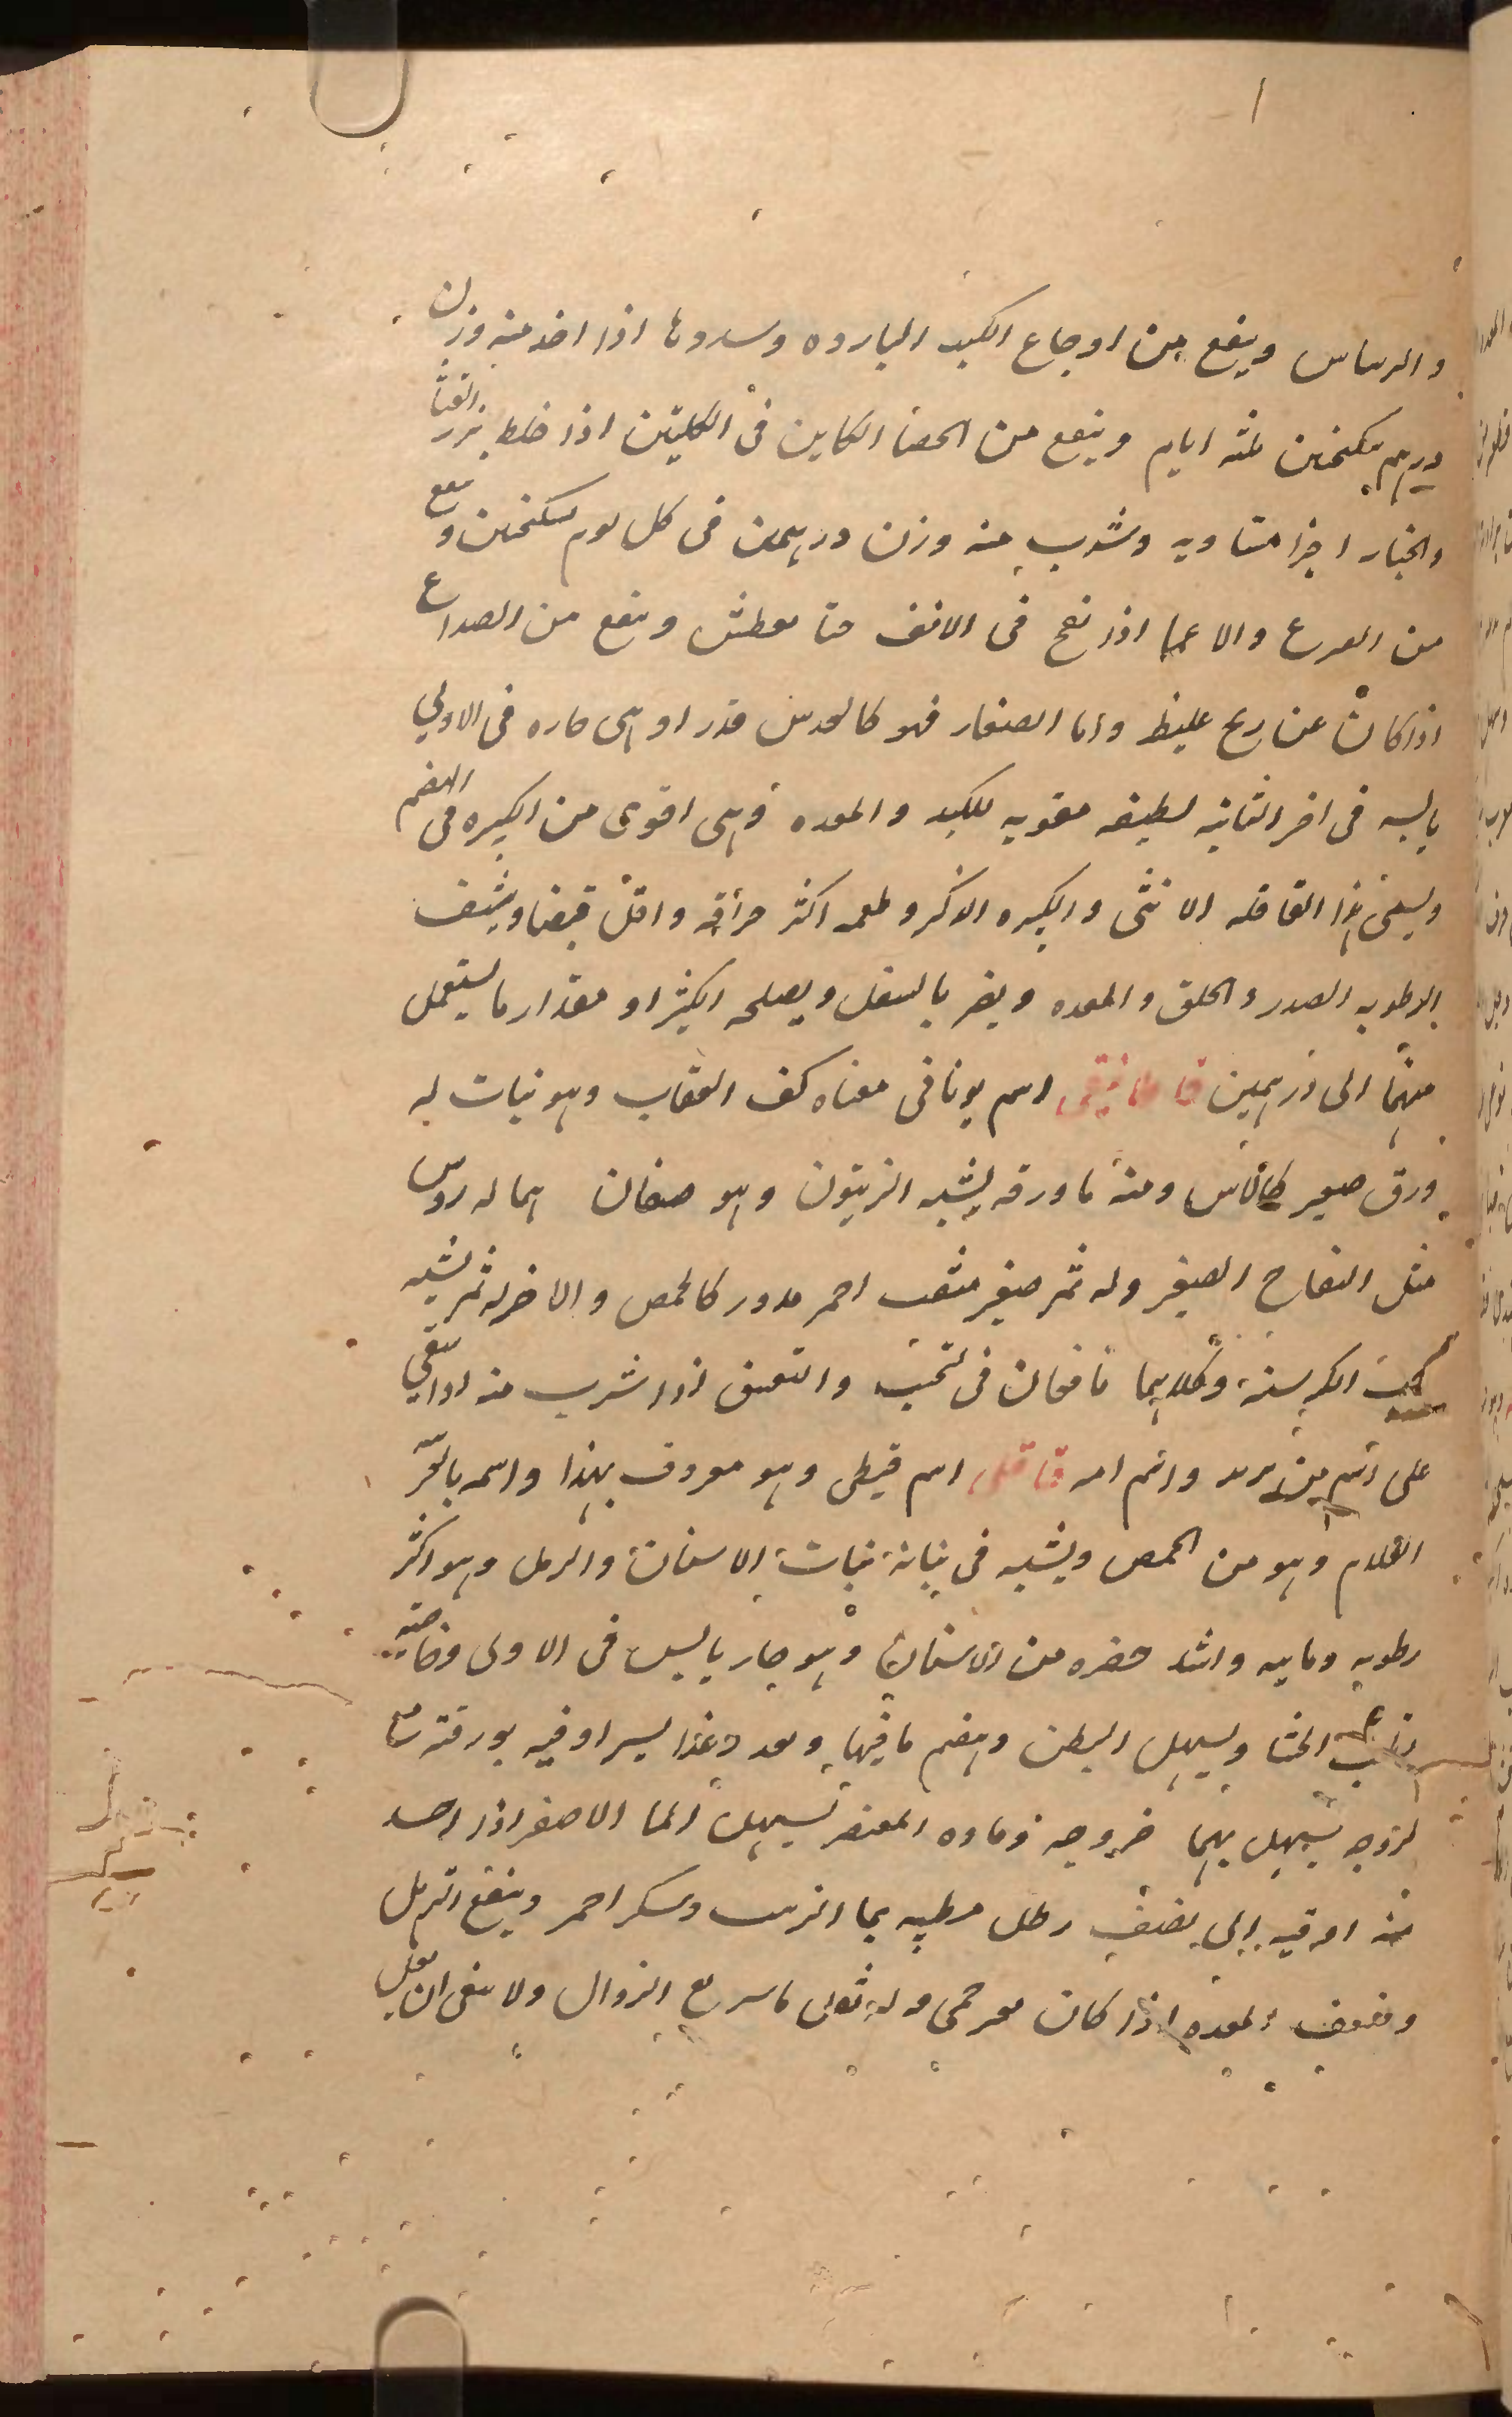 وينفع من اوجاع الكبد البارده وسددها اذا اخذ منه وزن
درهم بسكنجبين ثلثه ايام وينفع من الحصا الكاين فى الكليتين اذا خلط ببزر القثا
والخيار اجزا متساويه وشرب منه وزن درهمين فى كل يوم بسكنجبين وينفع
من الصرع والاغما اذا نفخ فى الانف حتا يعطس وينفع من الصداع
اذا كان عن ريح غليظ واما الصغار فهو كالعدس قدرا وهى حاره فى الاولى
يابسه فى اخر الثانيه لطيفه مقويه للكبد والمعده وهى اقوى من الكبيره فى الهضم
ويسمى هذا القاقله الانثى والكبيره الذكر وطعمه اكثر حرافه واقل قبضا وينشف
الرطوبه الصدر والحلق والمعده ويضر بالسفل ويصلحه الكثيرا ومقدار ما يستعمل
منهما الى درهمين اسم يونانى معناه كف العقاب وهو نبات له
ورق صغير كالاس ومنه ما ورقه يشبه الزيتون وهو صنفان هما له روس
مثل التفاح الصغير وله ثمر صغير مثقب احمر مدور كالحمص والاخر له ثمر يشبه
حب الكرسنه وكلاهما نافعان فى اذا شرب منه
على اسم من واسم قاقلى اسم قبطى وهو معروف بهذا واسمه
القلام وهو من الحمص ويشبه فى نباته نبات الاسنان والرمل وهو اكثر
رطوبه ومايه واشد خضره من الاسنان وهو حار يابس فى الاولى وخاصيته
ويسهل البطن وهضم ما فيها غذا يسيرا وفيه بورقيه مع
لزوجه يسهل بهما خروجه وماوه المعتصر يسهل الما الاصفر اذا اخذ
منه اوقيه الى نصف رطل وسكر احمر وينفع الترهل
وضعف المعده اذا كان سريع الزوال ولا ينبغى ان